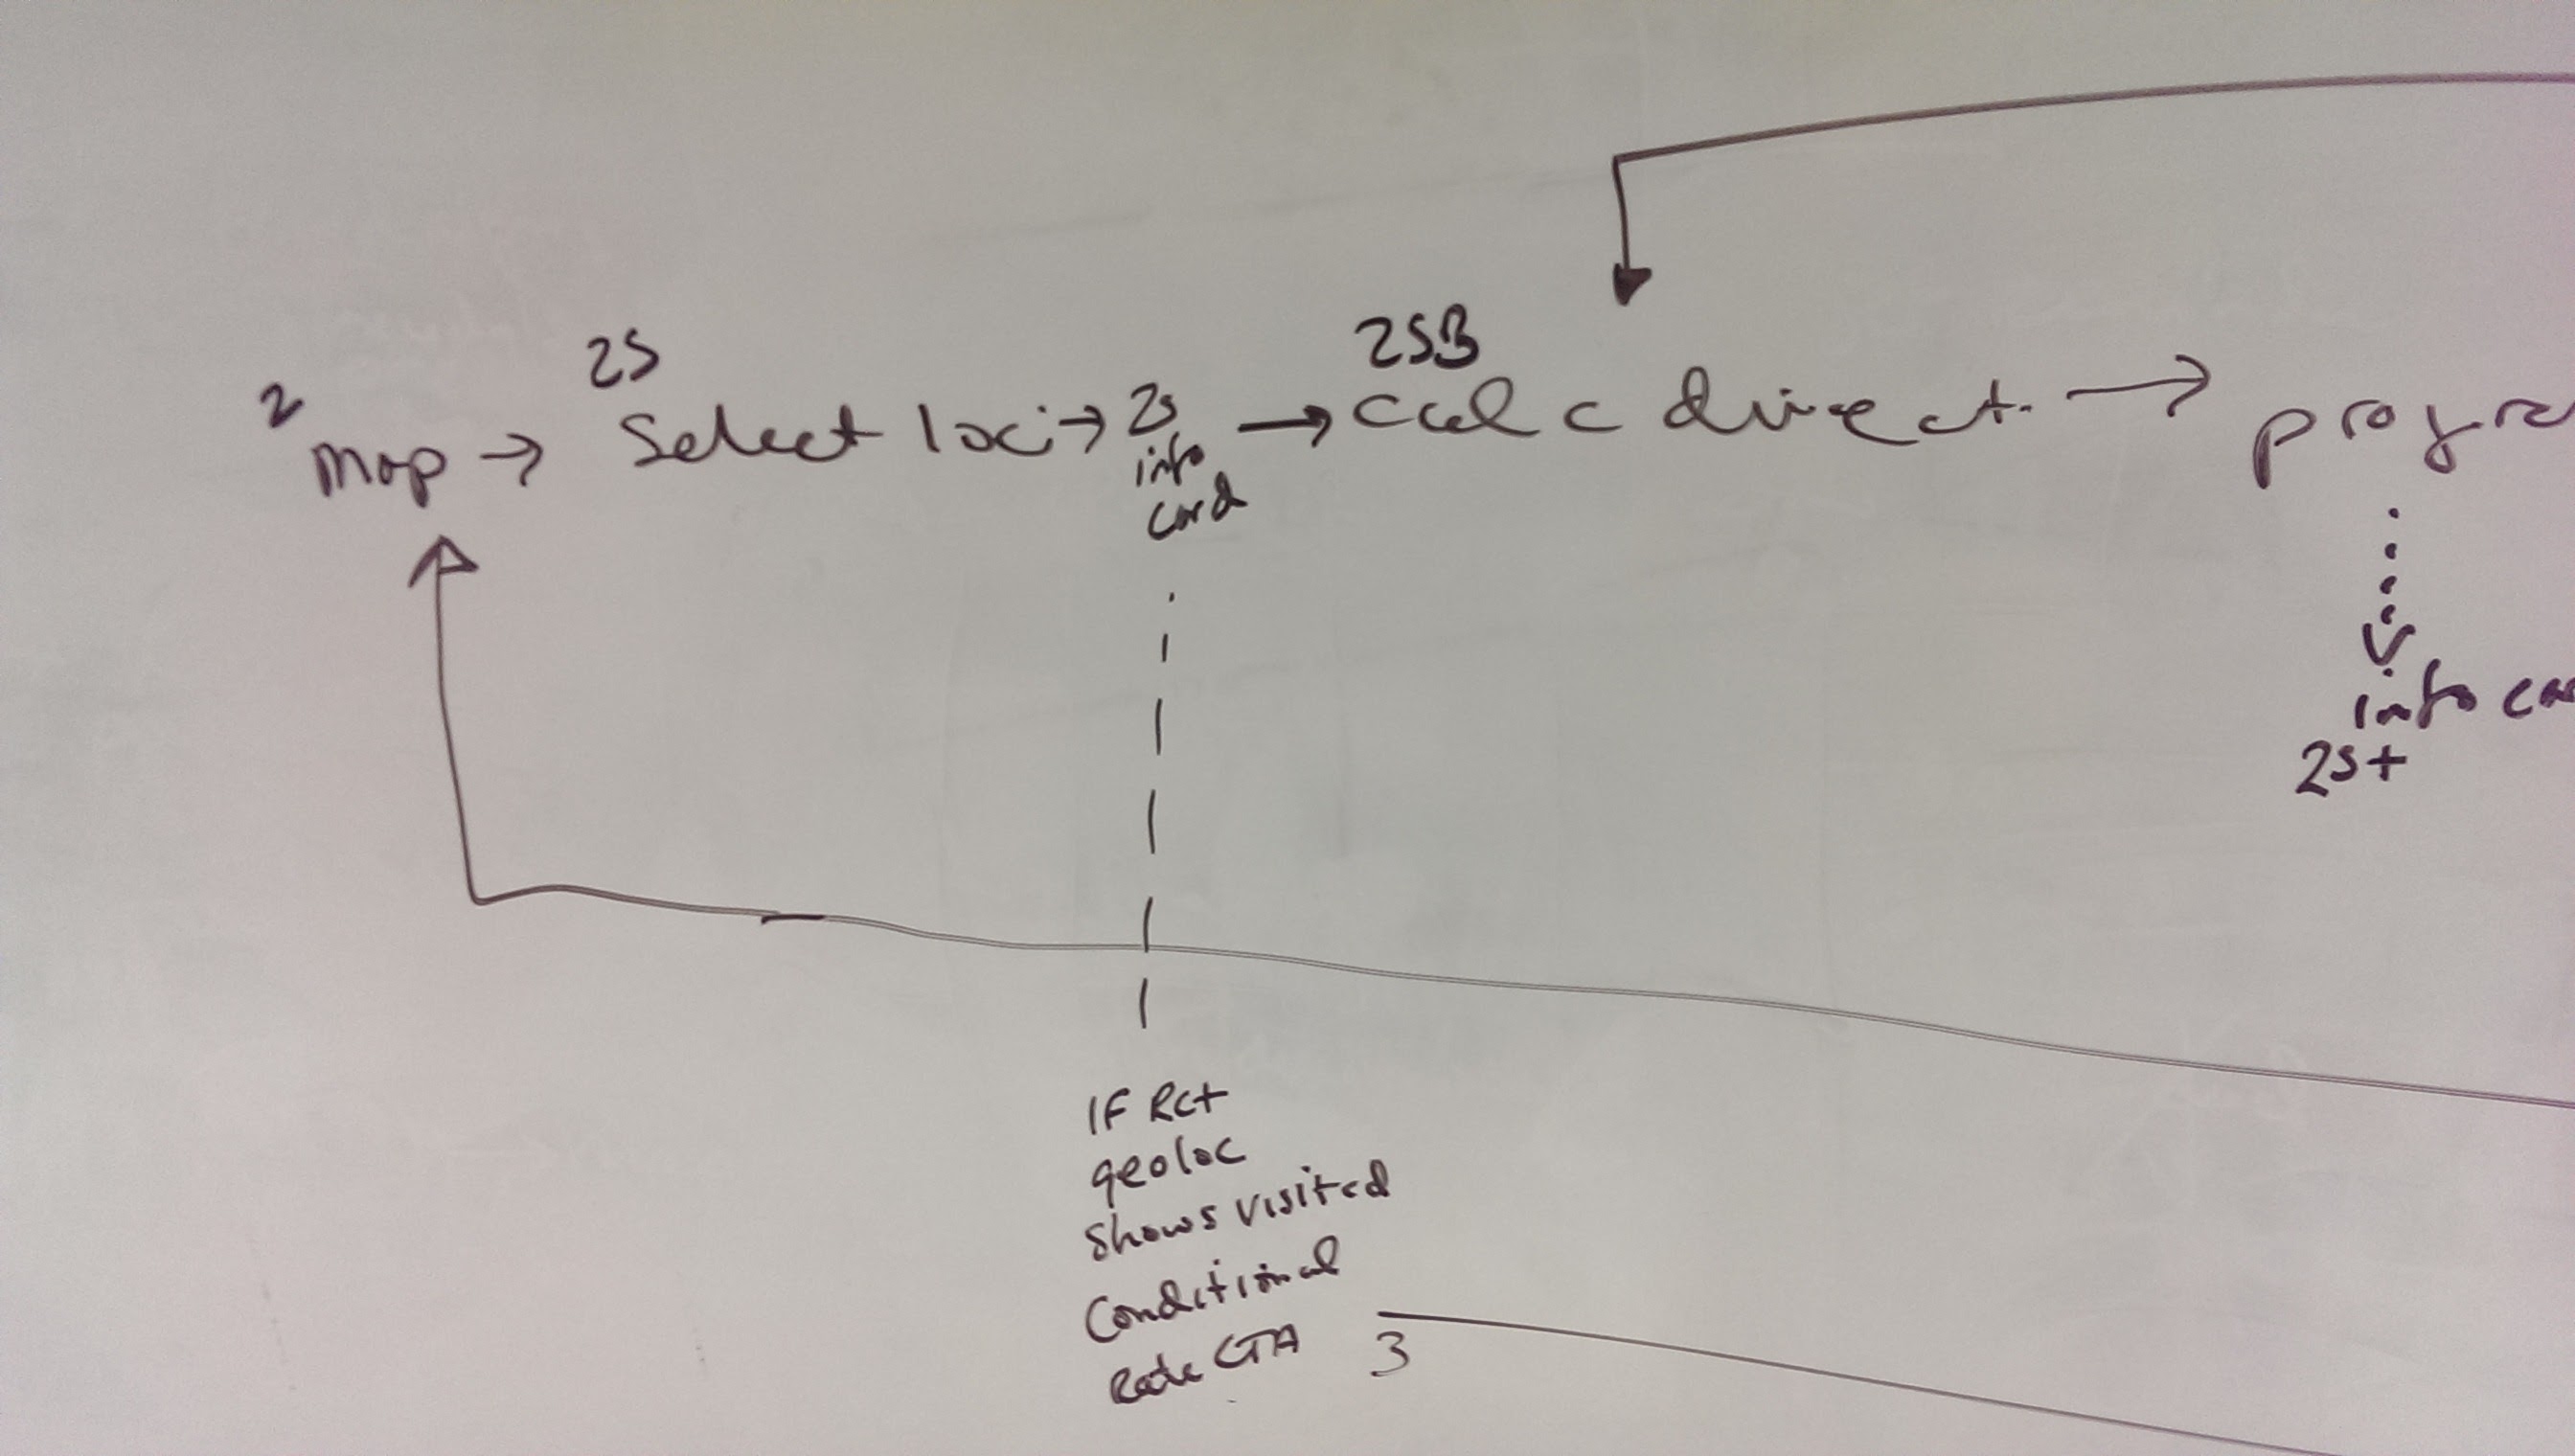 2
Map →
2S
Select loc →
2s
info
card
→
2SB
Calc direct. →
progre
info ca
2S+
IF Rct
geoloc
shows visited
Conditional
Rate CTA 3